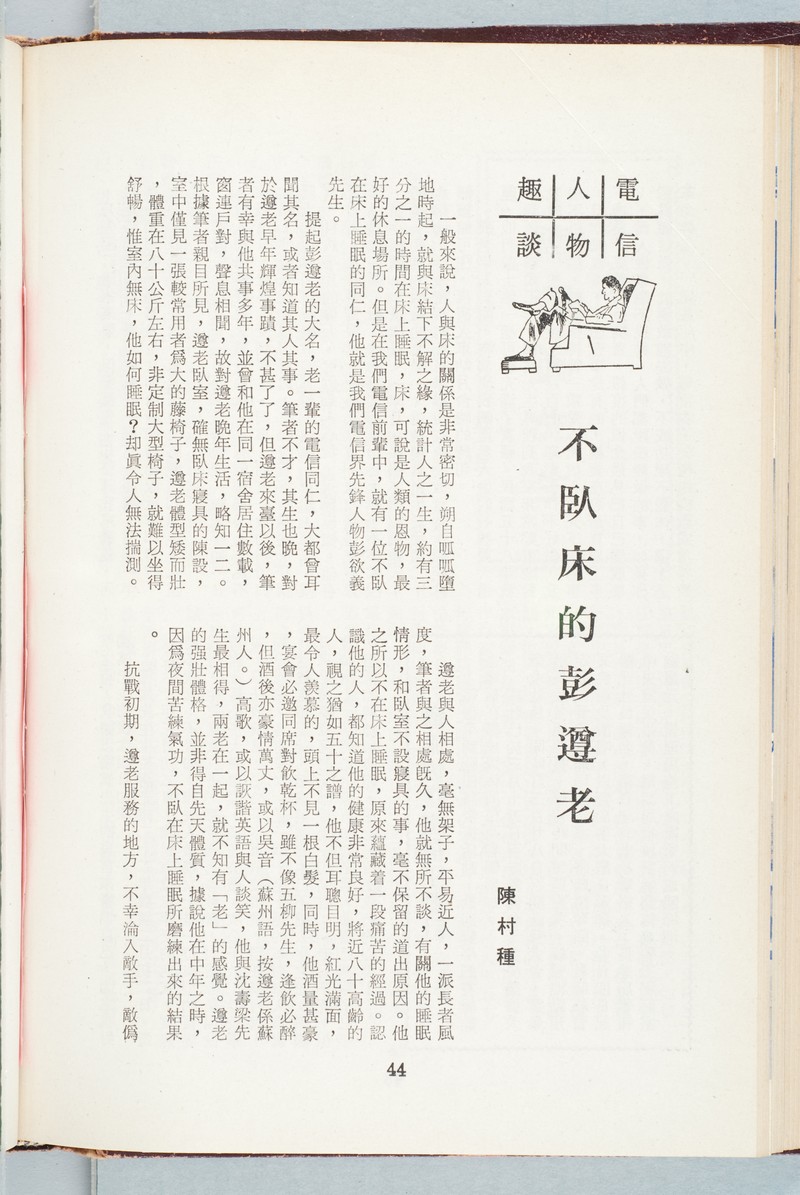 電信
人物
趣談
不臥床的彭遵老
陳村種
一般來說，人與床的關係是非常密切，朔自呱呱墮
地時起，就與床結下不解之緣，統計人之一生，約有三
分之一的時間在床上睡眠，床，可說是人類的恩物，最
好的休息場所。但是在我們電信前輩中，就有一位不臥
在床上睡眠的同仁，他就是我們電信界先鋒人物彭欲義
先生。
提起彭遵老的大名，老一輩的電信同仁，大都曾耳
聞其名，或者知道其人其事。筆者不才，其生也晚，對
於遵老早年輝煌事蹟，不甚了了，但遵老來臺以後，筆
者有幸與他共事多年，並曾和他在同一宿舍居住數載，
窗連戶對，聲息相聞，故對遵老晚年生活，略知一二。
根據筆者親目所見，遵老臥室，確無臥床寢具的陳設，
室中僅見一張較常用者爲大的藤椅子，遵老體型矮而壯
，體重在八十公斤左右，非定制大型椅子，就難以坐得
舒暢，惟室內無床，他如何睡眠？却眞令人無法揣測。
遵老與人相處，毫無架子，平易近人，一派長者風
度，筆者與之相處旣久，他就無所不談，有關他的睡眠
情形，和臥室不設寢具的事，毫不保留的道出原因。他
之所以不在床上睡眠，原來蘊藏着一段痛苦的經過。認
識他的人，都知道他的健康非常良好，將近八十高齡的
人，視之猶如五十之譜，他不但耳聰目明，紅光滿面，
最令人羨慕的，頭上不見一根白髮，同時，他酒量甚豪
，宴會必邀同席對飲乾杯，雖不像五柳先生，逢飲必醉
，但酒後亦豪情萬丈，或以吳音（蘇州語，按遵老係蘇
州人。）高歌，或以詼諧英語與人談笑，他與沈壽梁先
生最相得，兩老在一起，就不知有「老」的感覺。遵老
的强壯體格，並非得自先天體質，據說他在中年之時，
因爲夜間苦練氣功，不臥在床上睡眠所磨練出來的結果
。
抗戰初期，遵老服務的地方，不幸淪入敵手，敵僞
44